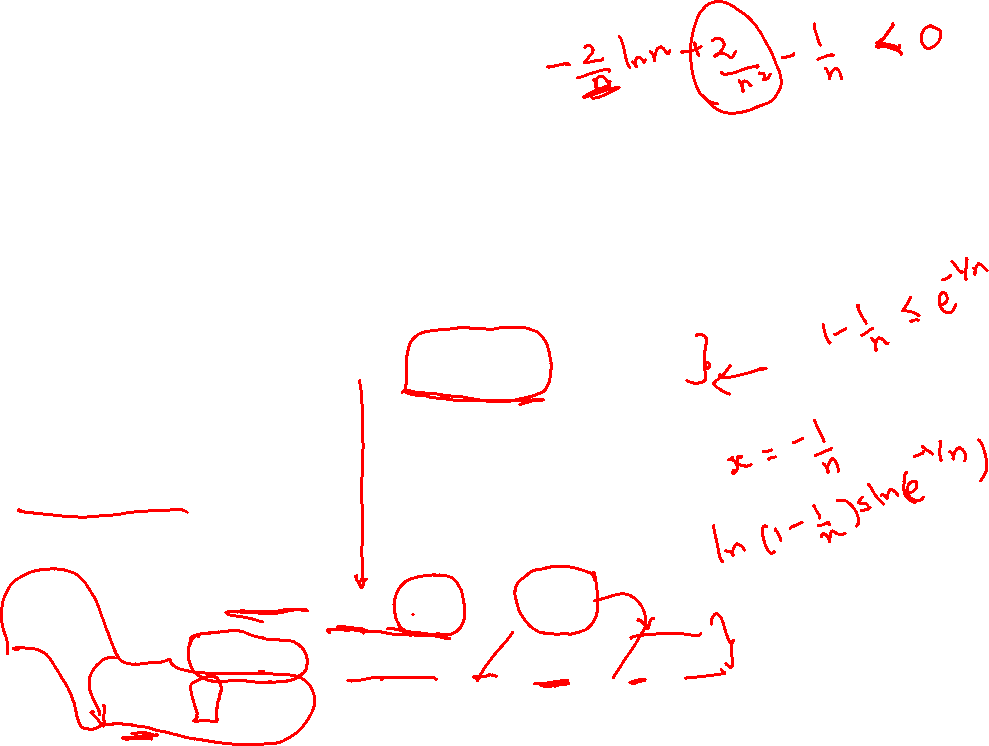 -2/n ln n + 2/n² - 1/n < 0
1 - 1/n ≤ e^{-1/n}
x = -1/n
ln (1 - 1/n) ≤ ln(e^{-1/n})